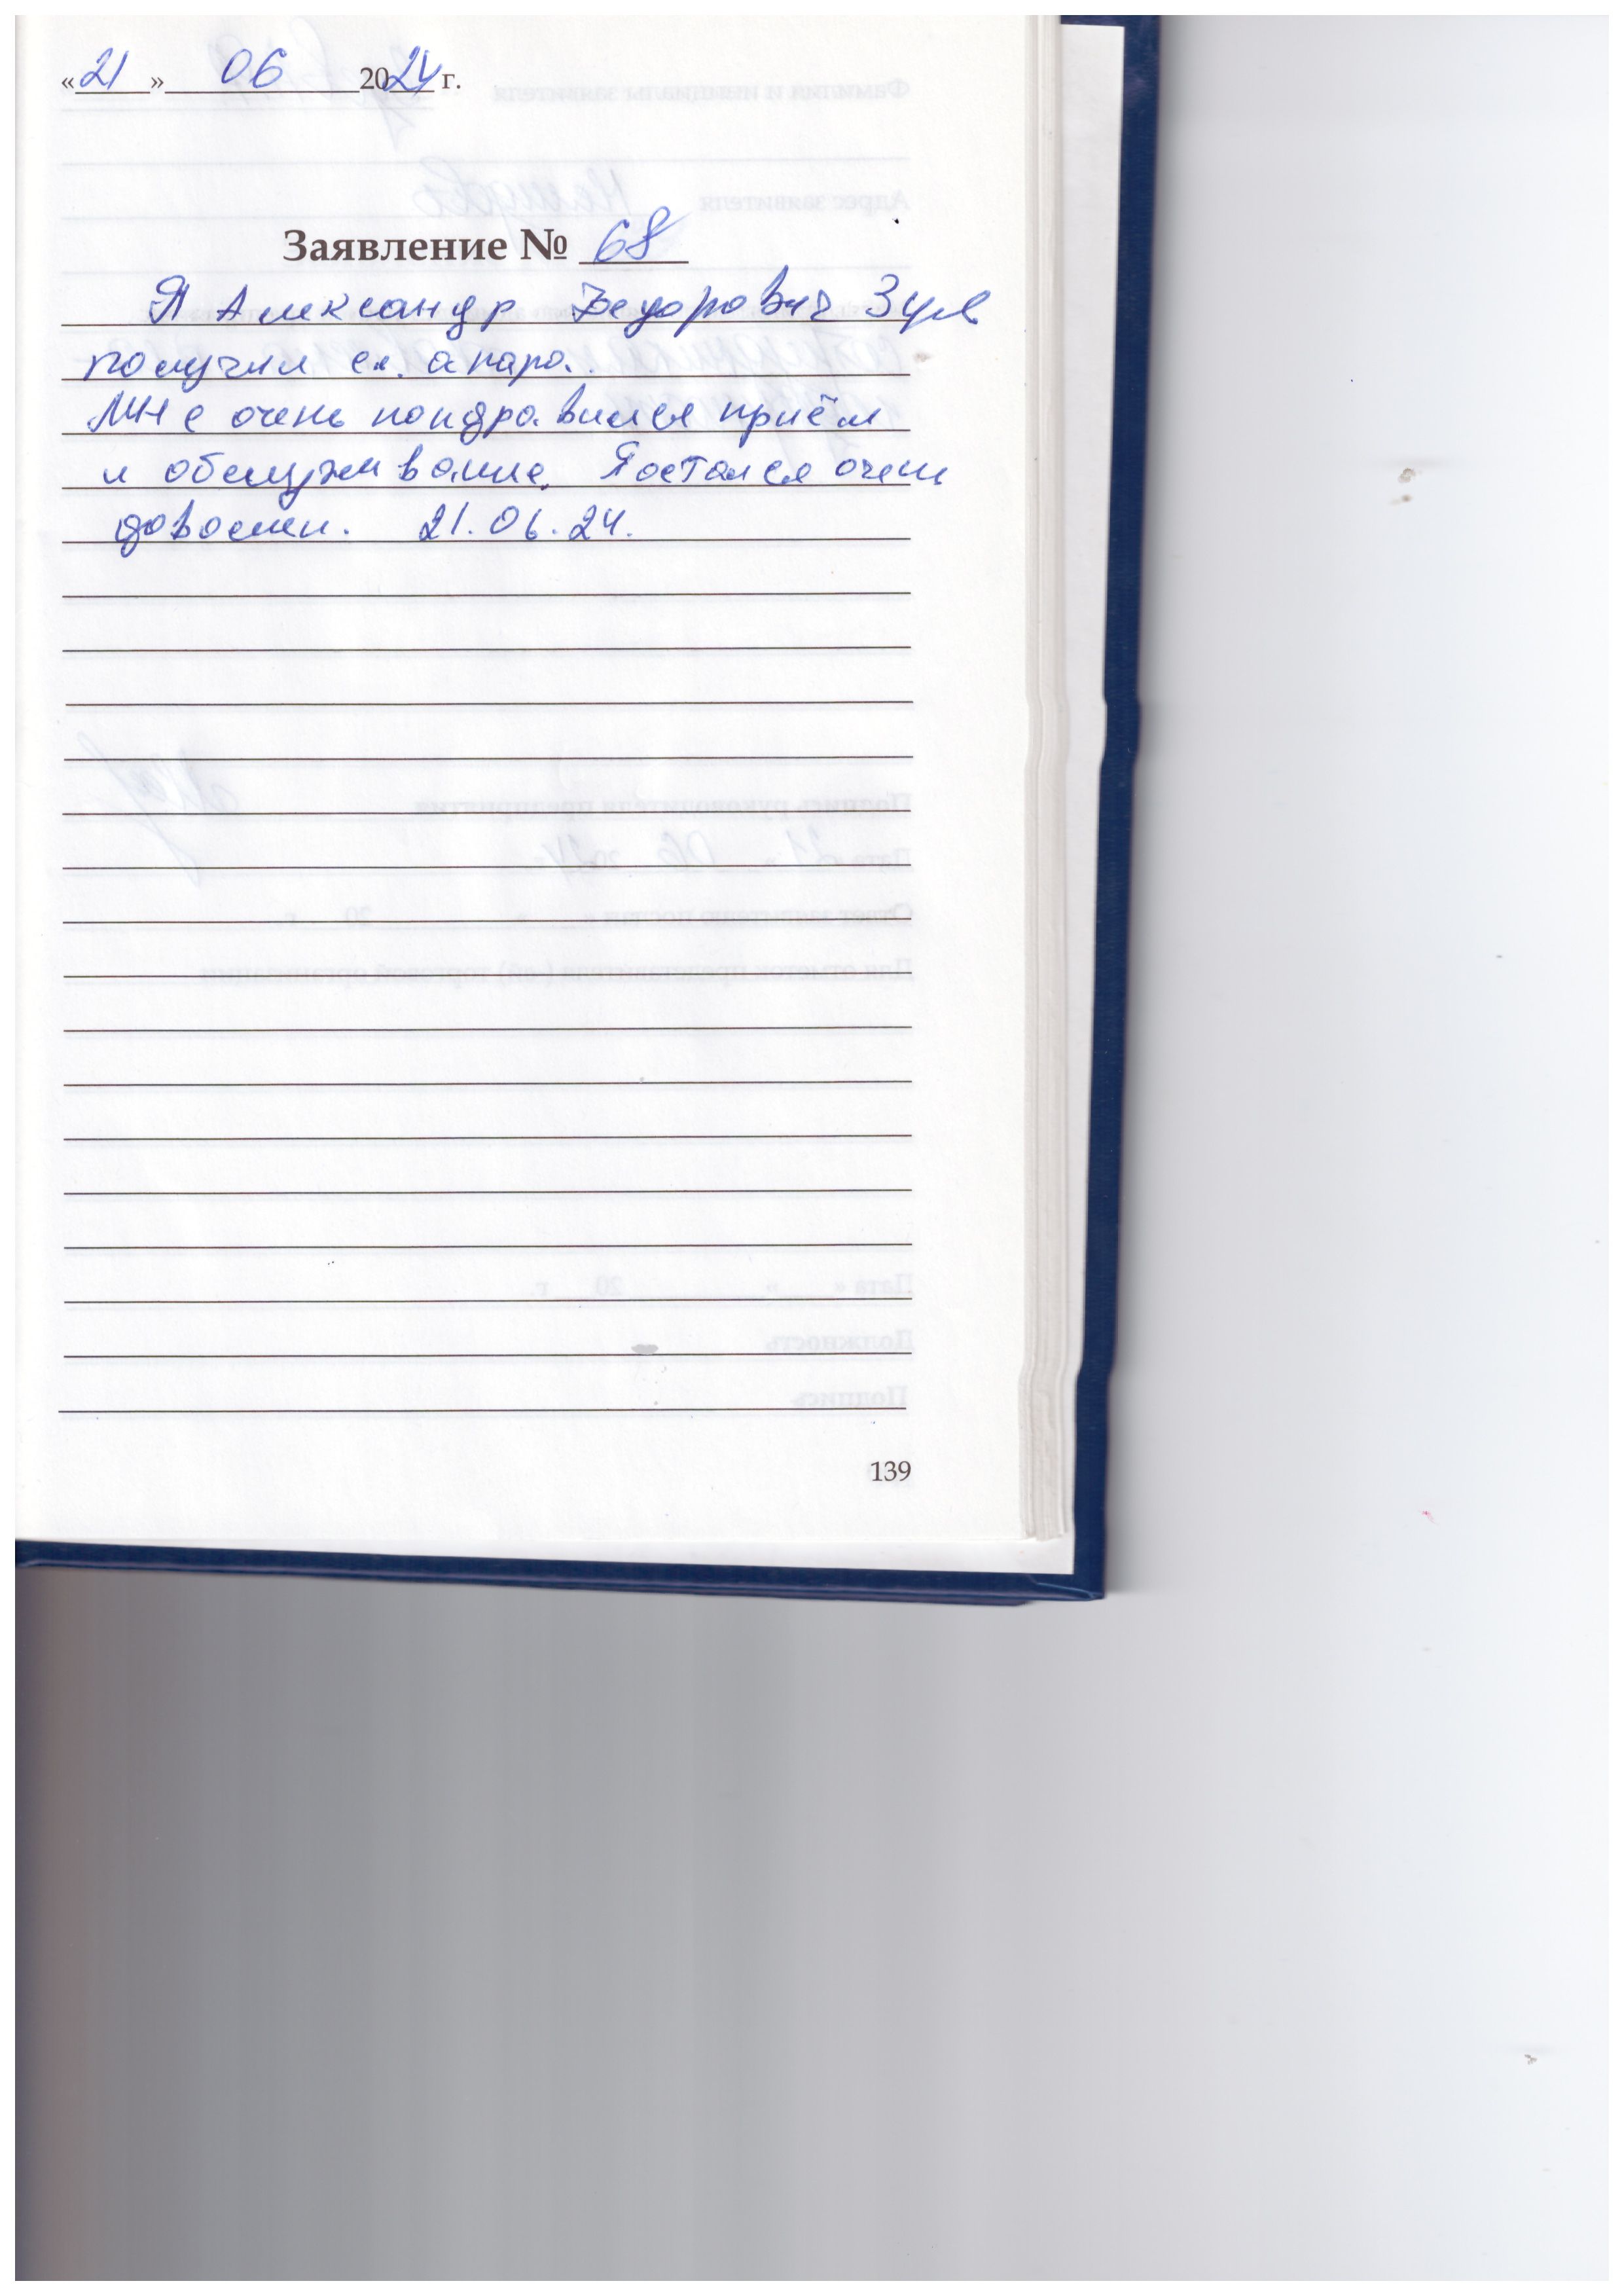 «21» 06 2024 г.
Заявление № 68
Я Александр Федорович
получил сл. апара.
Мне очень пондравился приём
и обслуживание. Я остался очень
доволен. 21.06.24.
139